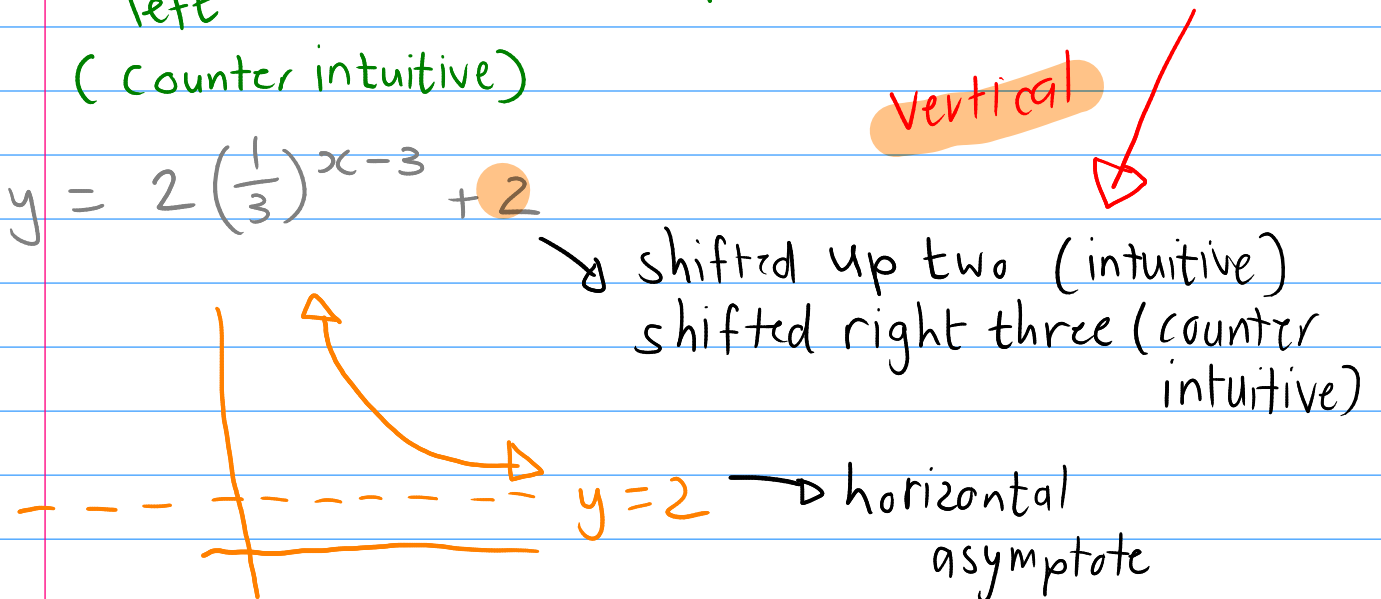 left
(counter intuitive)
vertical
y = 2(1/3)^(x-3) + 2
shifted up two (intuitive)
shifted right three (counter
intuitive)
y = 2
horizontal
asymptote